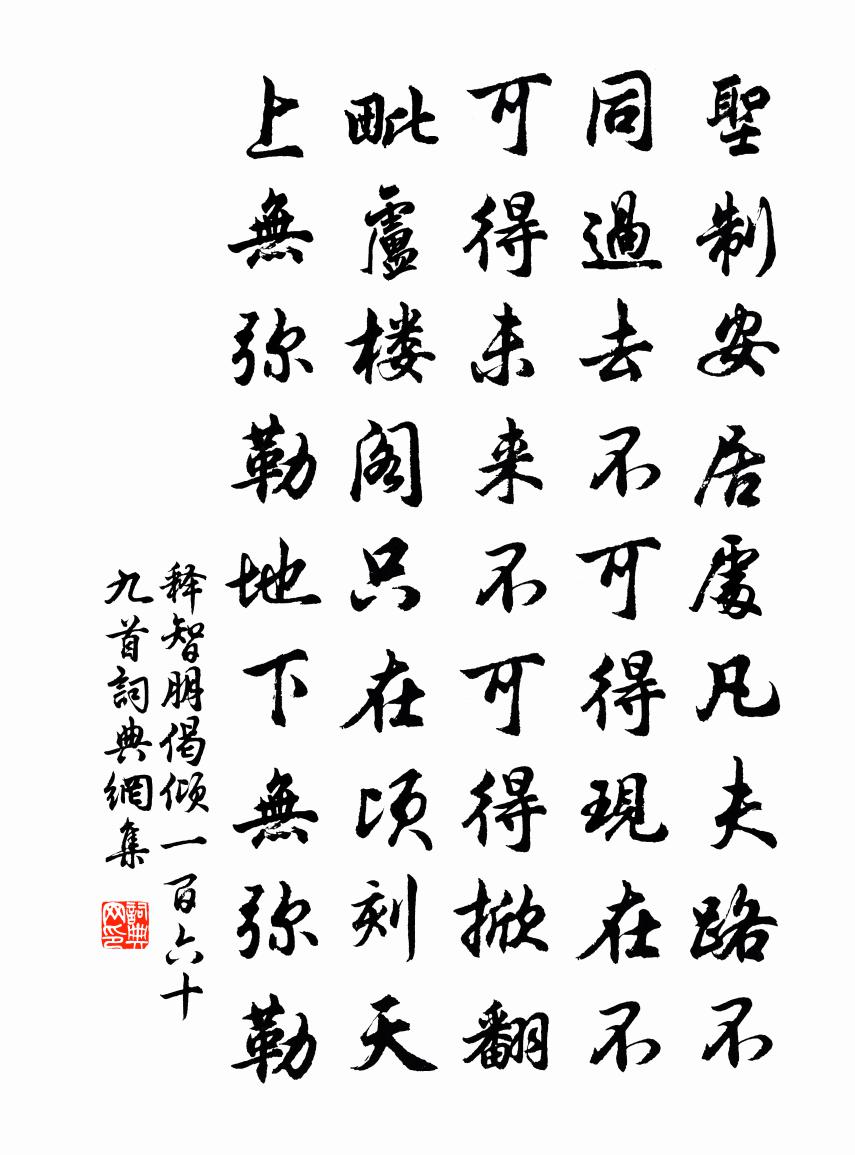 聖制安居處凡夫路不
同過去不可得現在不
可得未来不可得掀翻
毗盧楼阁只在顷刻天
上無弥勒地下無弥勒
释智朋偈倾一百六十
九首詞典網集
詞典
网印